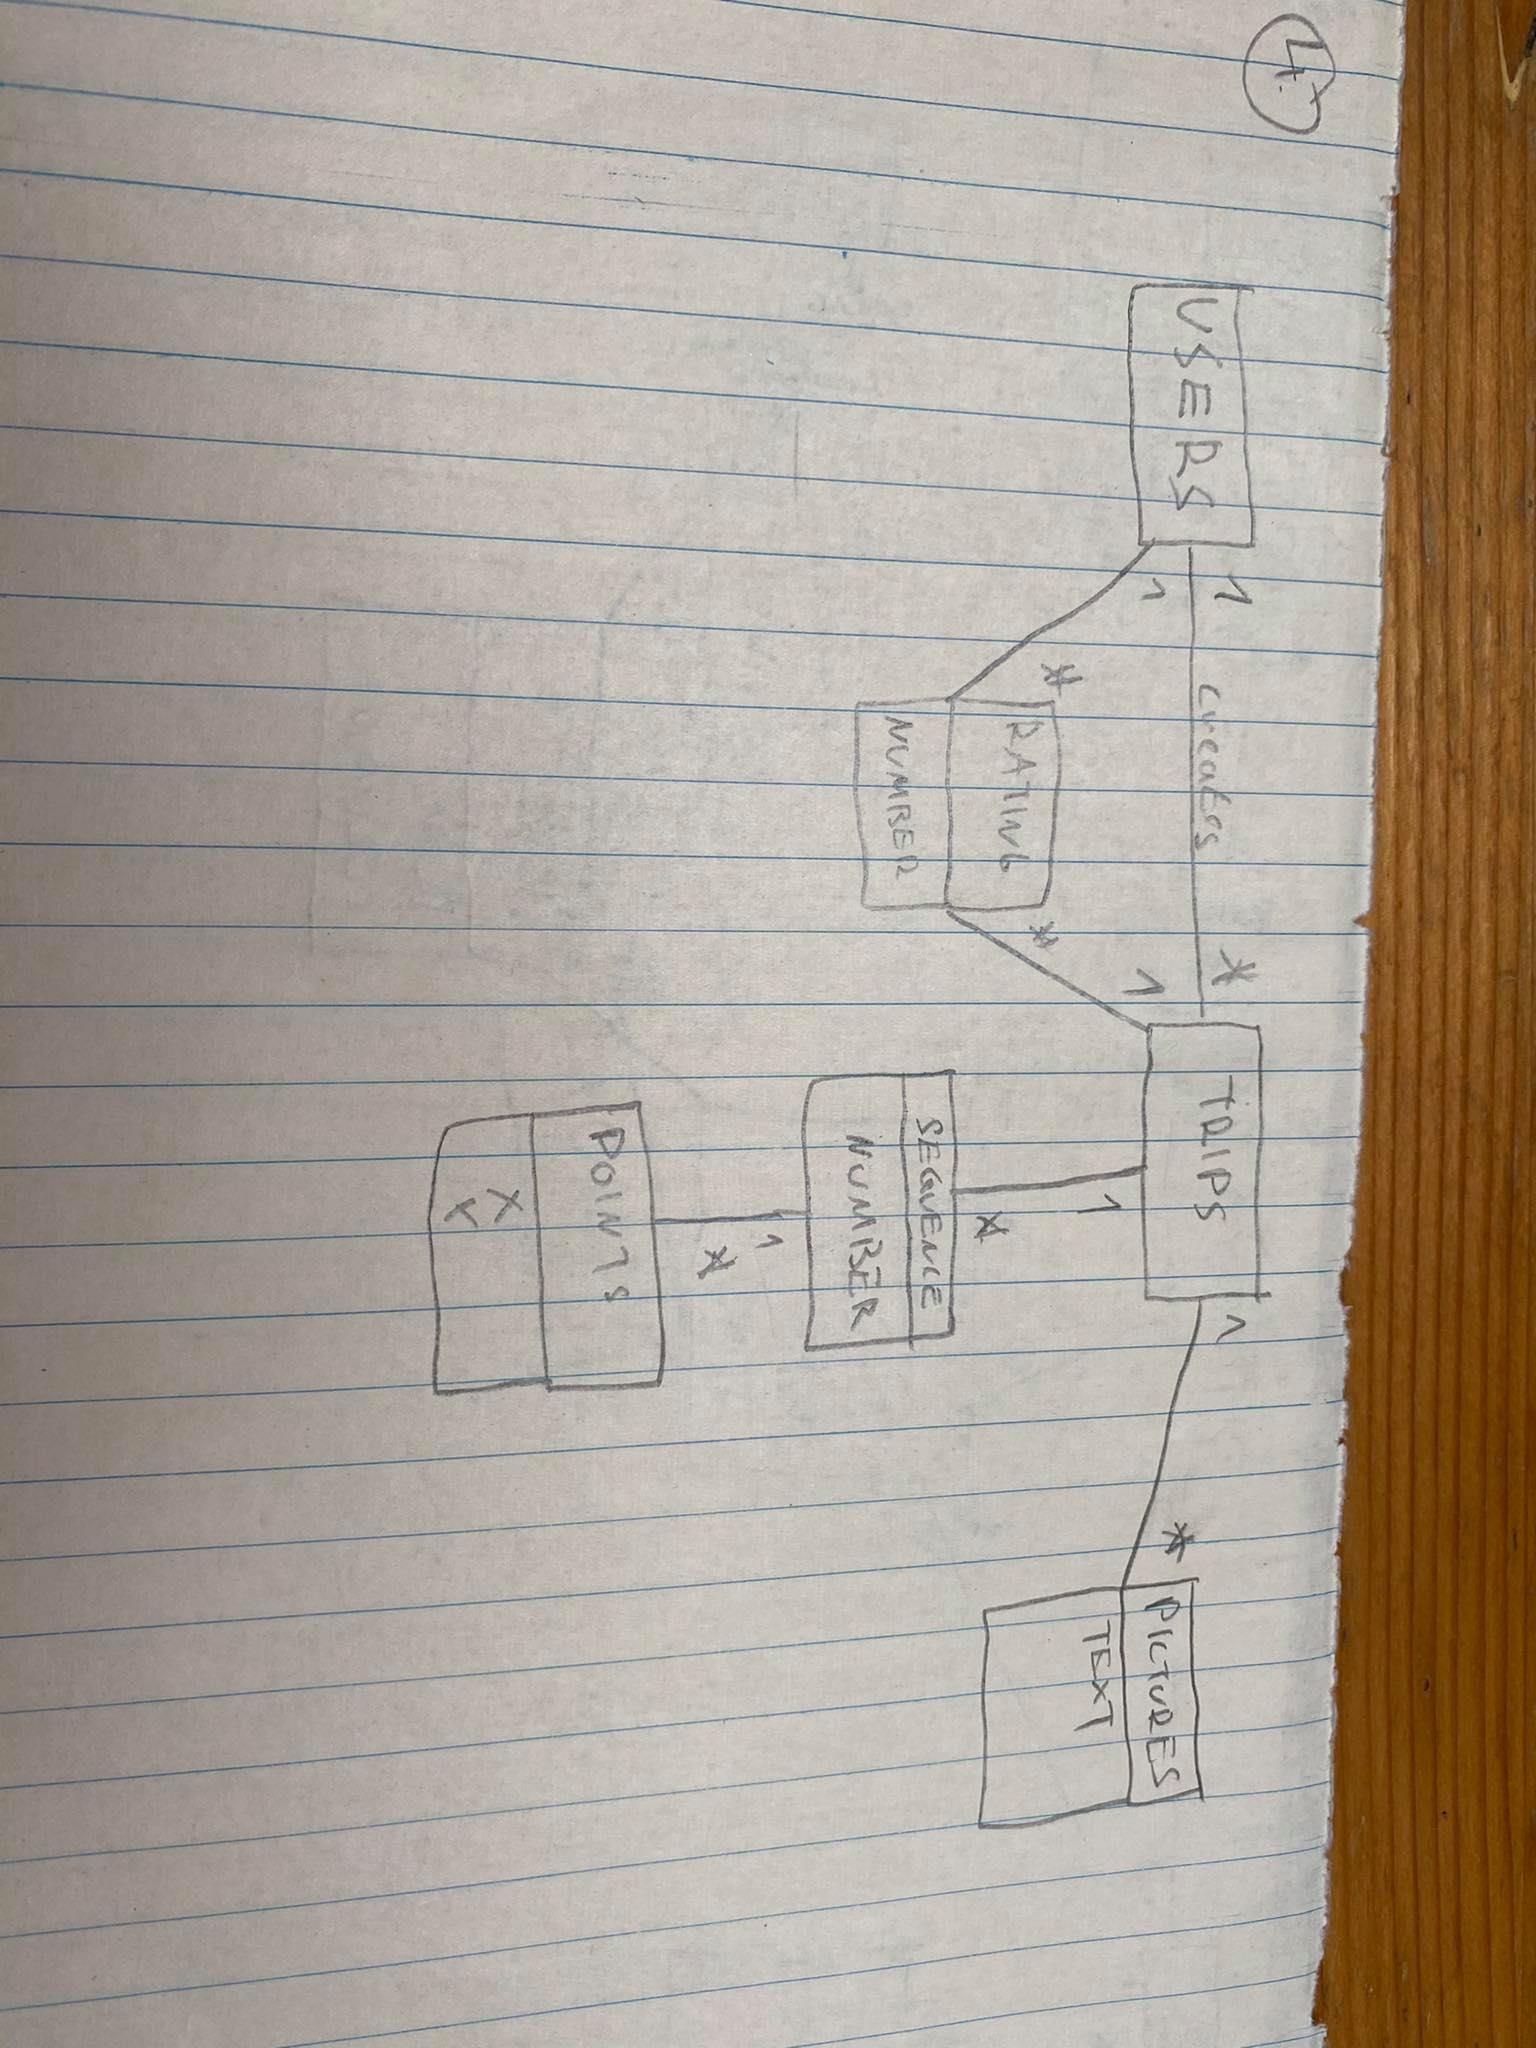 4.
USERS
1
creates
*
TRIPS
1
*
PICTURES
TEXT
1
1
*
RATING
*
NUMBER
1
*
SEQUENCE
NUMBER
1
*
POINTS
X
Y